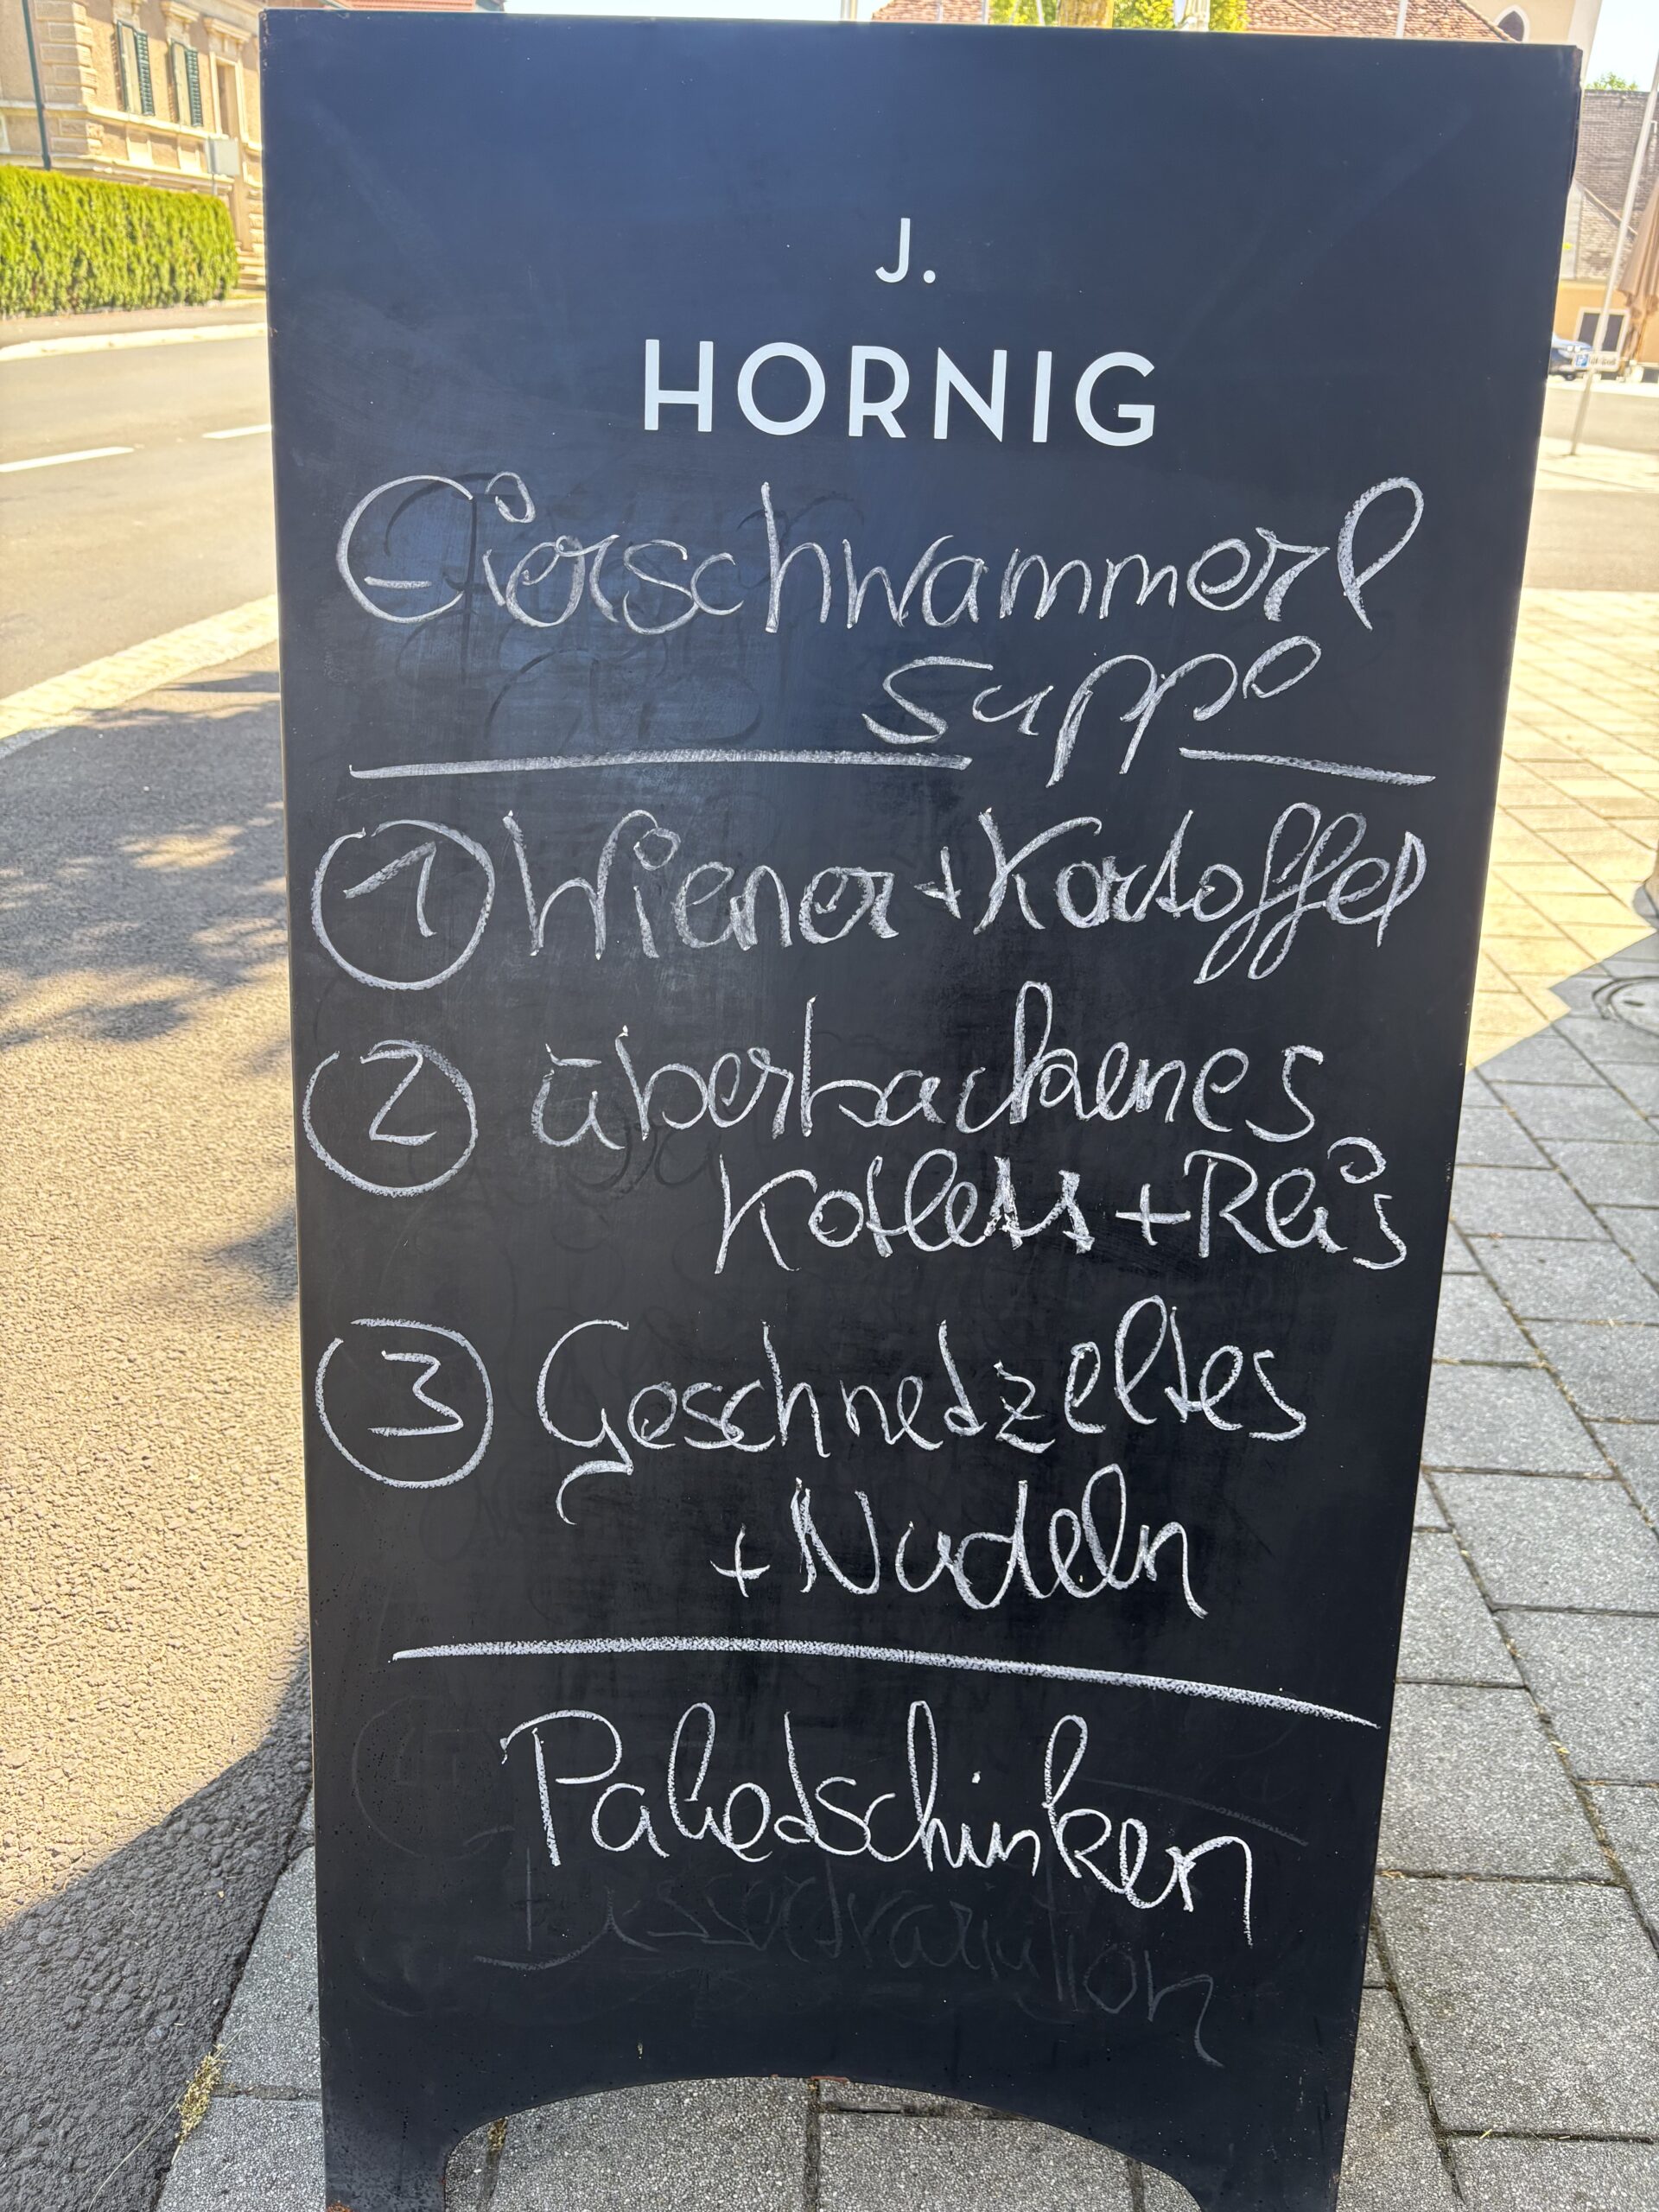 J.
HORNIG
Eierschwammerl
suppe
① Wiener + Kartoffel
② überbackenes
Kotlett + Reis
③ Geschnetzeltes
+ Nudeln
Paketschinken